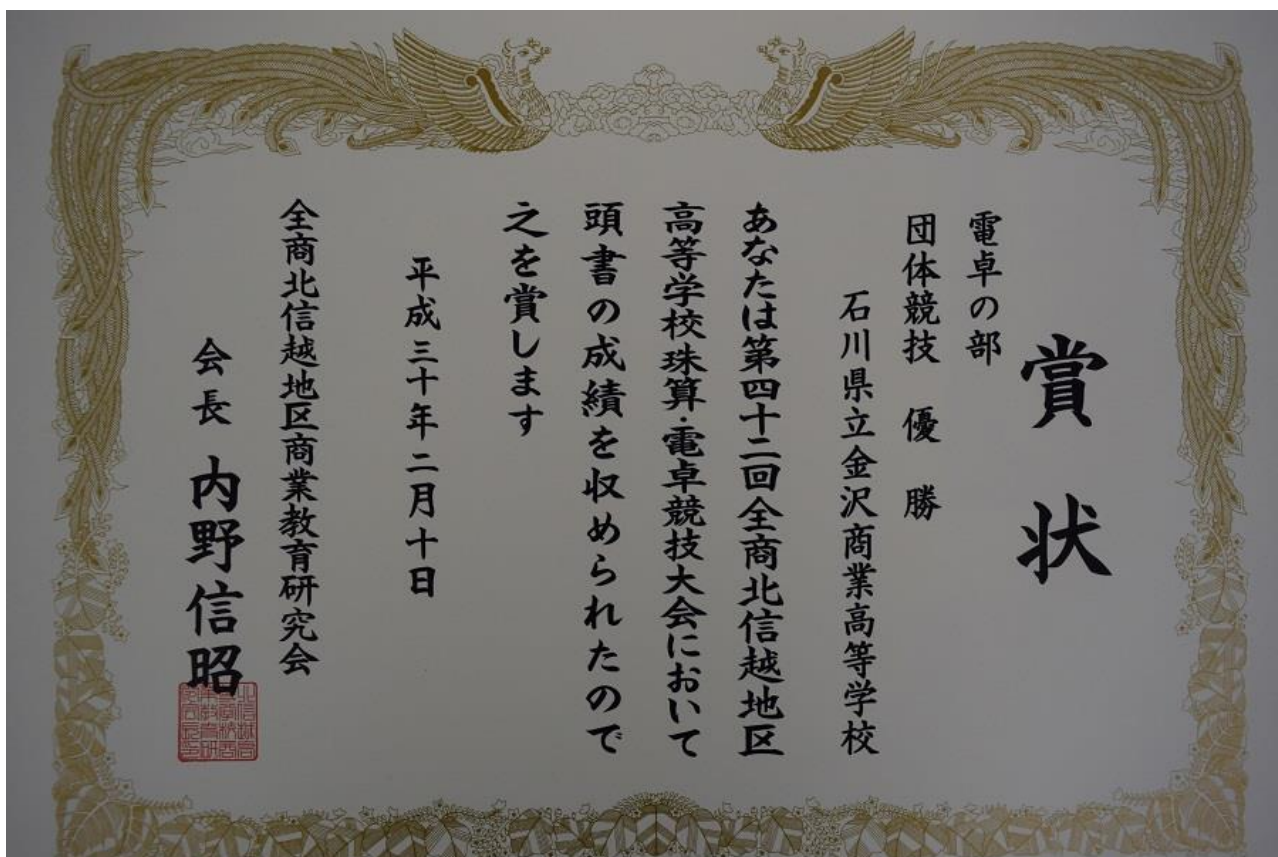 賞状
電卓の部
団体競技 優勝
石川県立金沢商業高等学校
あなたは第四十二回全商北信越地区
高等学校珠算・電卓競技大会において
頭書の成績を収められたので
之を賞します
平成三十年二月十日
全商北信越地区商業教育研究会
会長 内野信昭